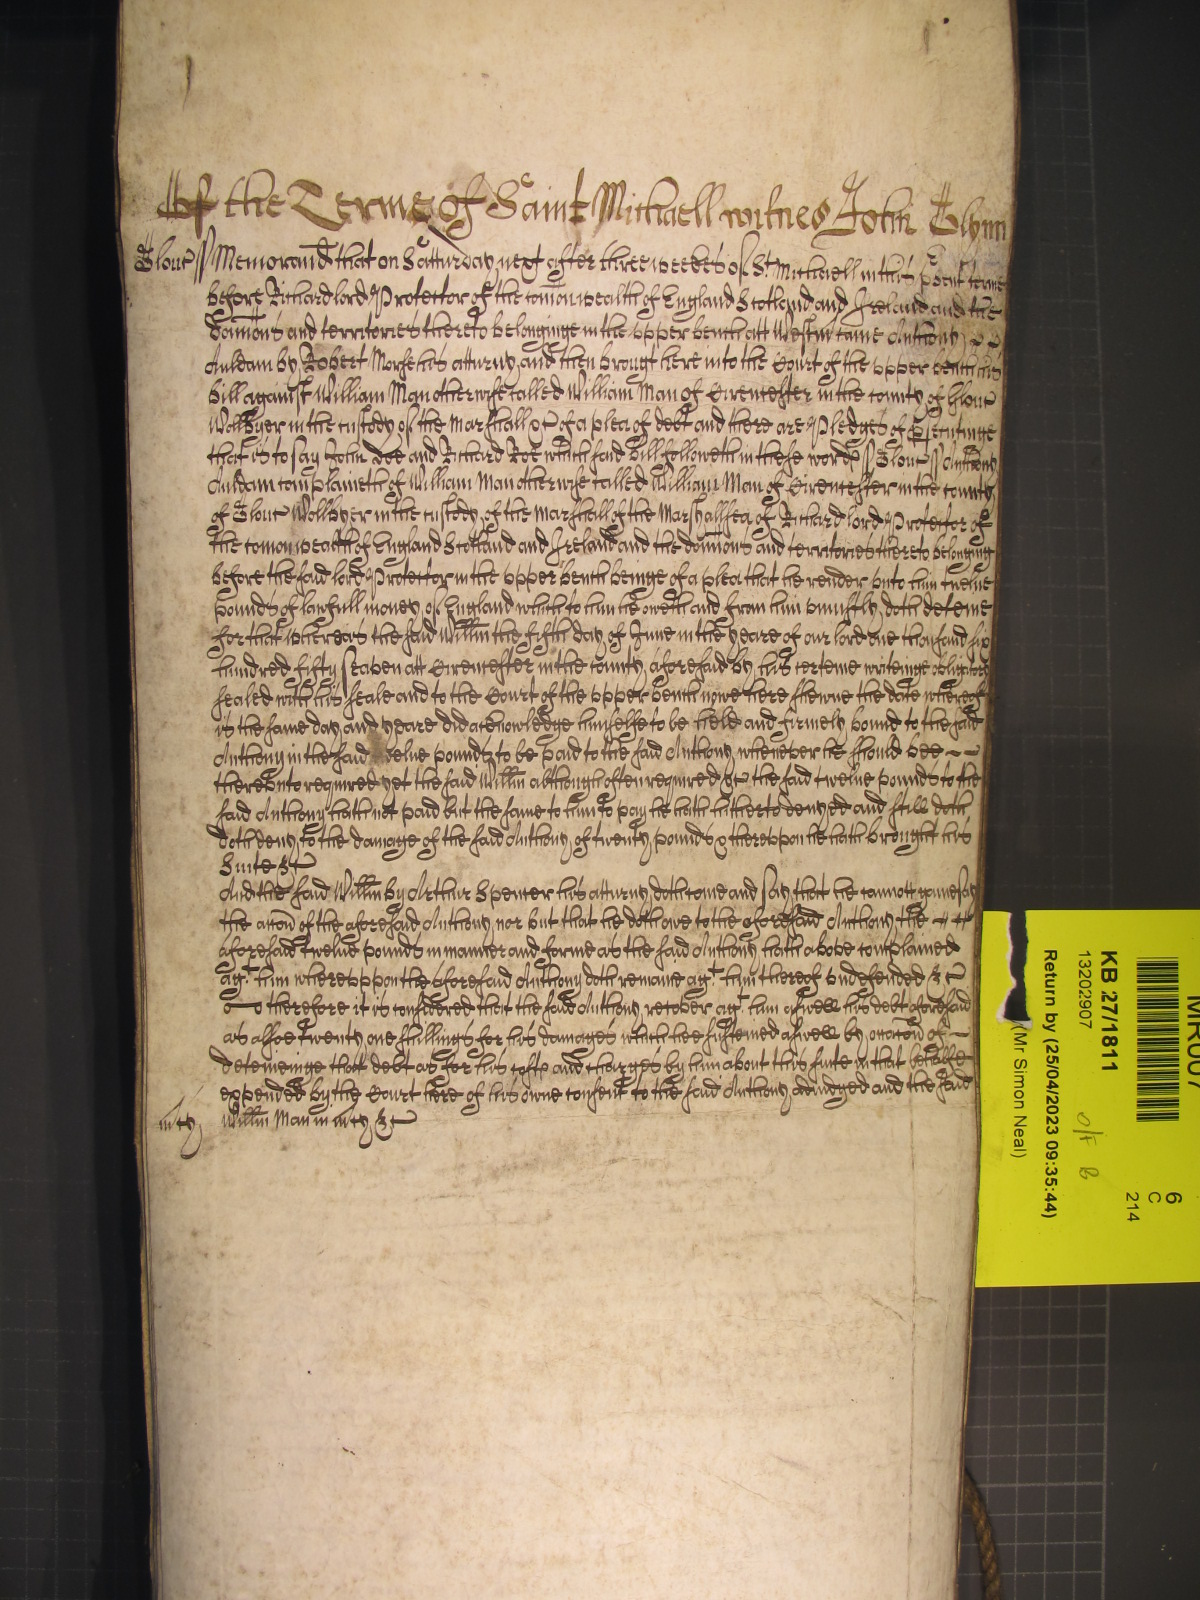 Of the Terme of Saint Michaell witnes John Glynn
Glouc ss Memorand that on Satturday next after three weekes of St Michaell in this psent terme
before Richard lord Protector of the comonwealth of England Scotland and Ireland and the
dominions and territories thereto belonginge in the upper bench att Westm came Anthony
Auldam by Robert Morse his atturny and then brougt here into the Court of the upper bench his
bill against William Man otherwise called William Man of Cirencester in the county of Glouc
Wollbyer in the custody of the Marshall &c of a plea of debt and there are Pledges of Prosecutinge
that is to say John Doe and Richard Roe which said bill followeth in these words ss Glouc ss Anthony
Auldam complaineth of William Man otherwise called William Man of Cirencester in the county
of Glouc Wollbyer in the custody of the Marshall of the Marshallsea of Richard lord Protector of
the comonwealth of England Scotland and Ireland and the dominions and territories thereto belonging
before the said lord Protector in the upper bench beinge of a plea that he render unto him twelve
pounds of lawfull money of England which to him he oweth and from him uniustly doth deteine
for that whereas the said Willm the fifth day of June in the yeare of our lord one thousand six
hundred fifty seaven att Cirencester in the county aforesaid by his certeine writeinge obligatory
sealed with his seale and to the Court of the upper bench nowe here shewne the date whereof
is the same day and yeare did acknowledge himselfe to be held and firmely bound to the said
Anthony in the said twelve pounds to be paid to the said Anthony whenever he should bee
thereunto required yet the said Willm although often required &c the said twelve pounds to the
said Anthony hath not paid but the same to him to pay he hath hitherto denyed and still doth
doth deny to the damage of the said Anthony of twenty pounds & thereuppon he hath brought his
Suite &c
And the said Willm by Arthur Spencer his atturny doth come and say that he cannott gainesay
the accon of the aforesaid Anthony nor but that he doth owe to the aforesaid Anthony the
aforesaid twelve pounds in manner and forme as the said Anthony hath above complained
agt him whereuppon the aforesaid Anthony doth remaine agt him thereof undefended &c
therefore it is considered that the said Anthony recover agt him aswell his debt aforesaid
as alsoe twenty one shillings for his damages which hee susteined aswell by occacon of
deteineinge that debt as for his costs and charges by him about his suite in that behalfe
expended by the Court here of his owne consent to the said Anthony adiudged and the said
mcy Willm Man in mcy &c
MR007
KB 27/1811
13202907
Return by (25/04/2023 09:35:44)
(Mr Simon Neal)
6
C
214
O/F B